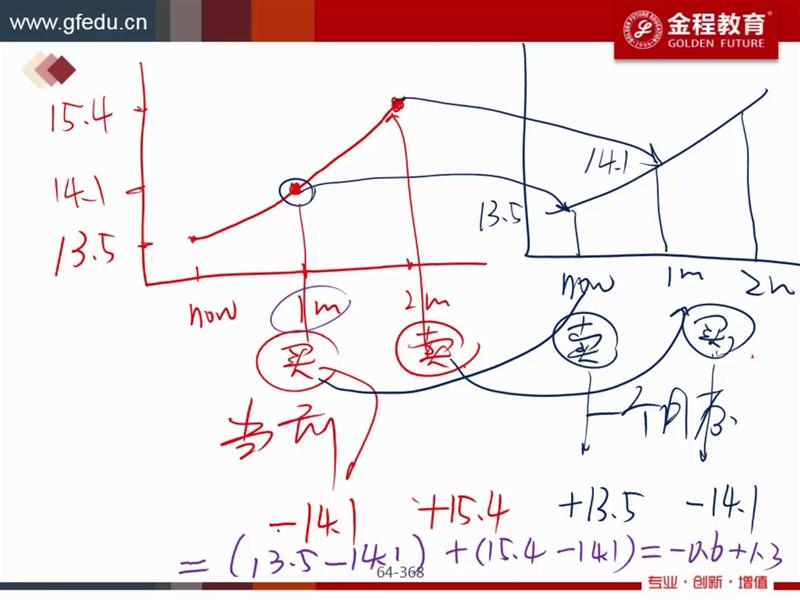 www.gfedu.cn
金程教育
GOLDEN FUTURE
15.4
14.1
13.5
now 1m 2m
14.1
13.5
now 1m 2m
买 卖 卖 买
当前 一个月后
-14.1 +15.4 +13.5 -14.1
= (13.5-14.1) + (15.4-14.1) = -0.6+1.3
64-368
专业·创新·增值